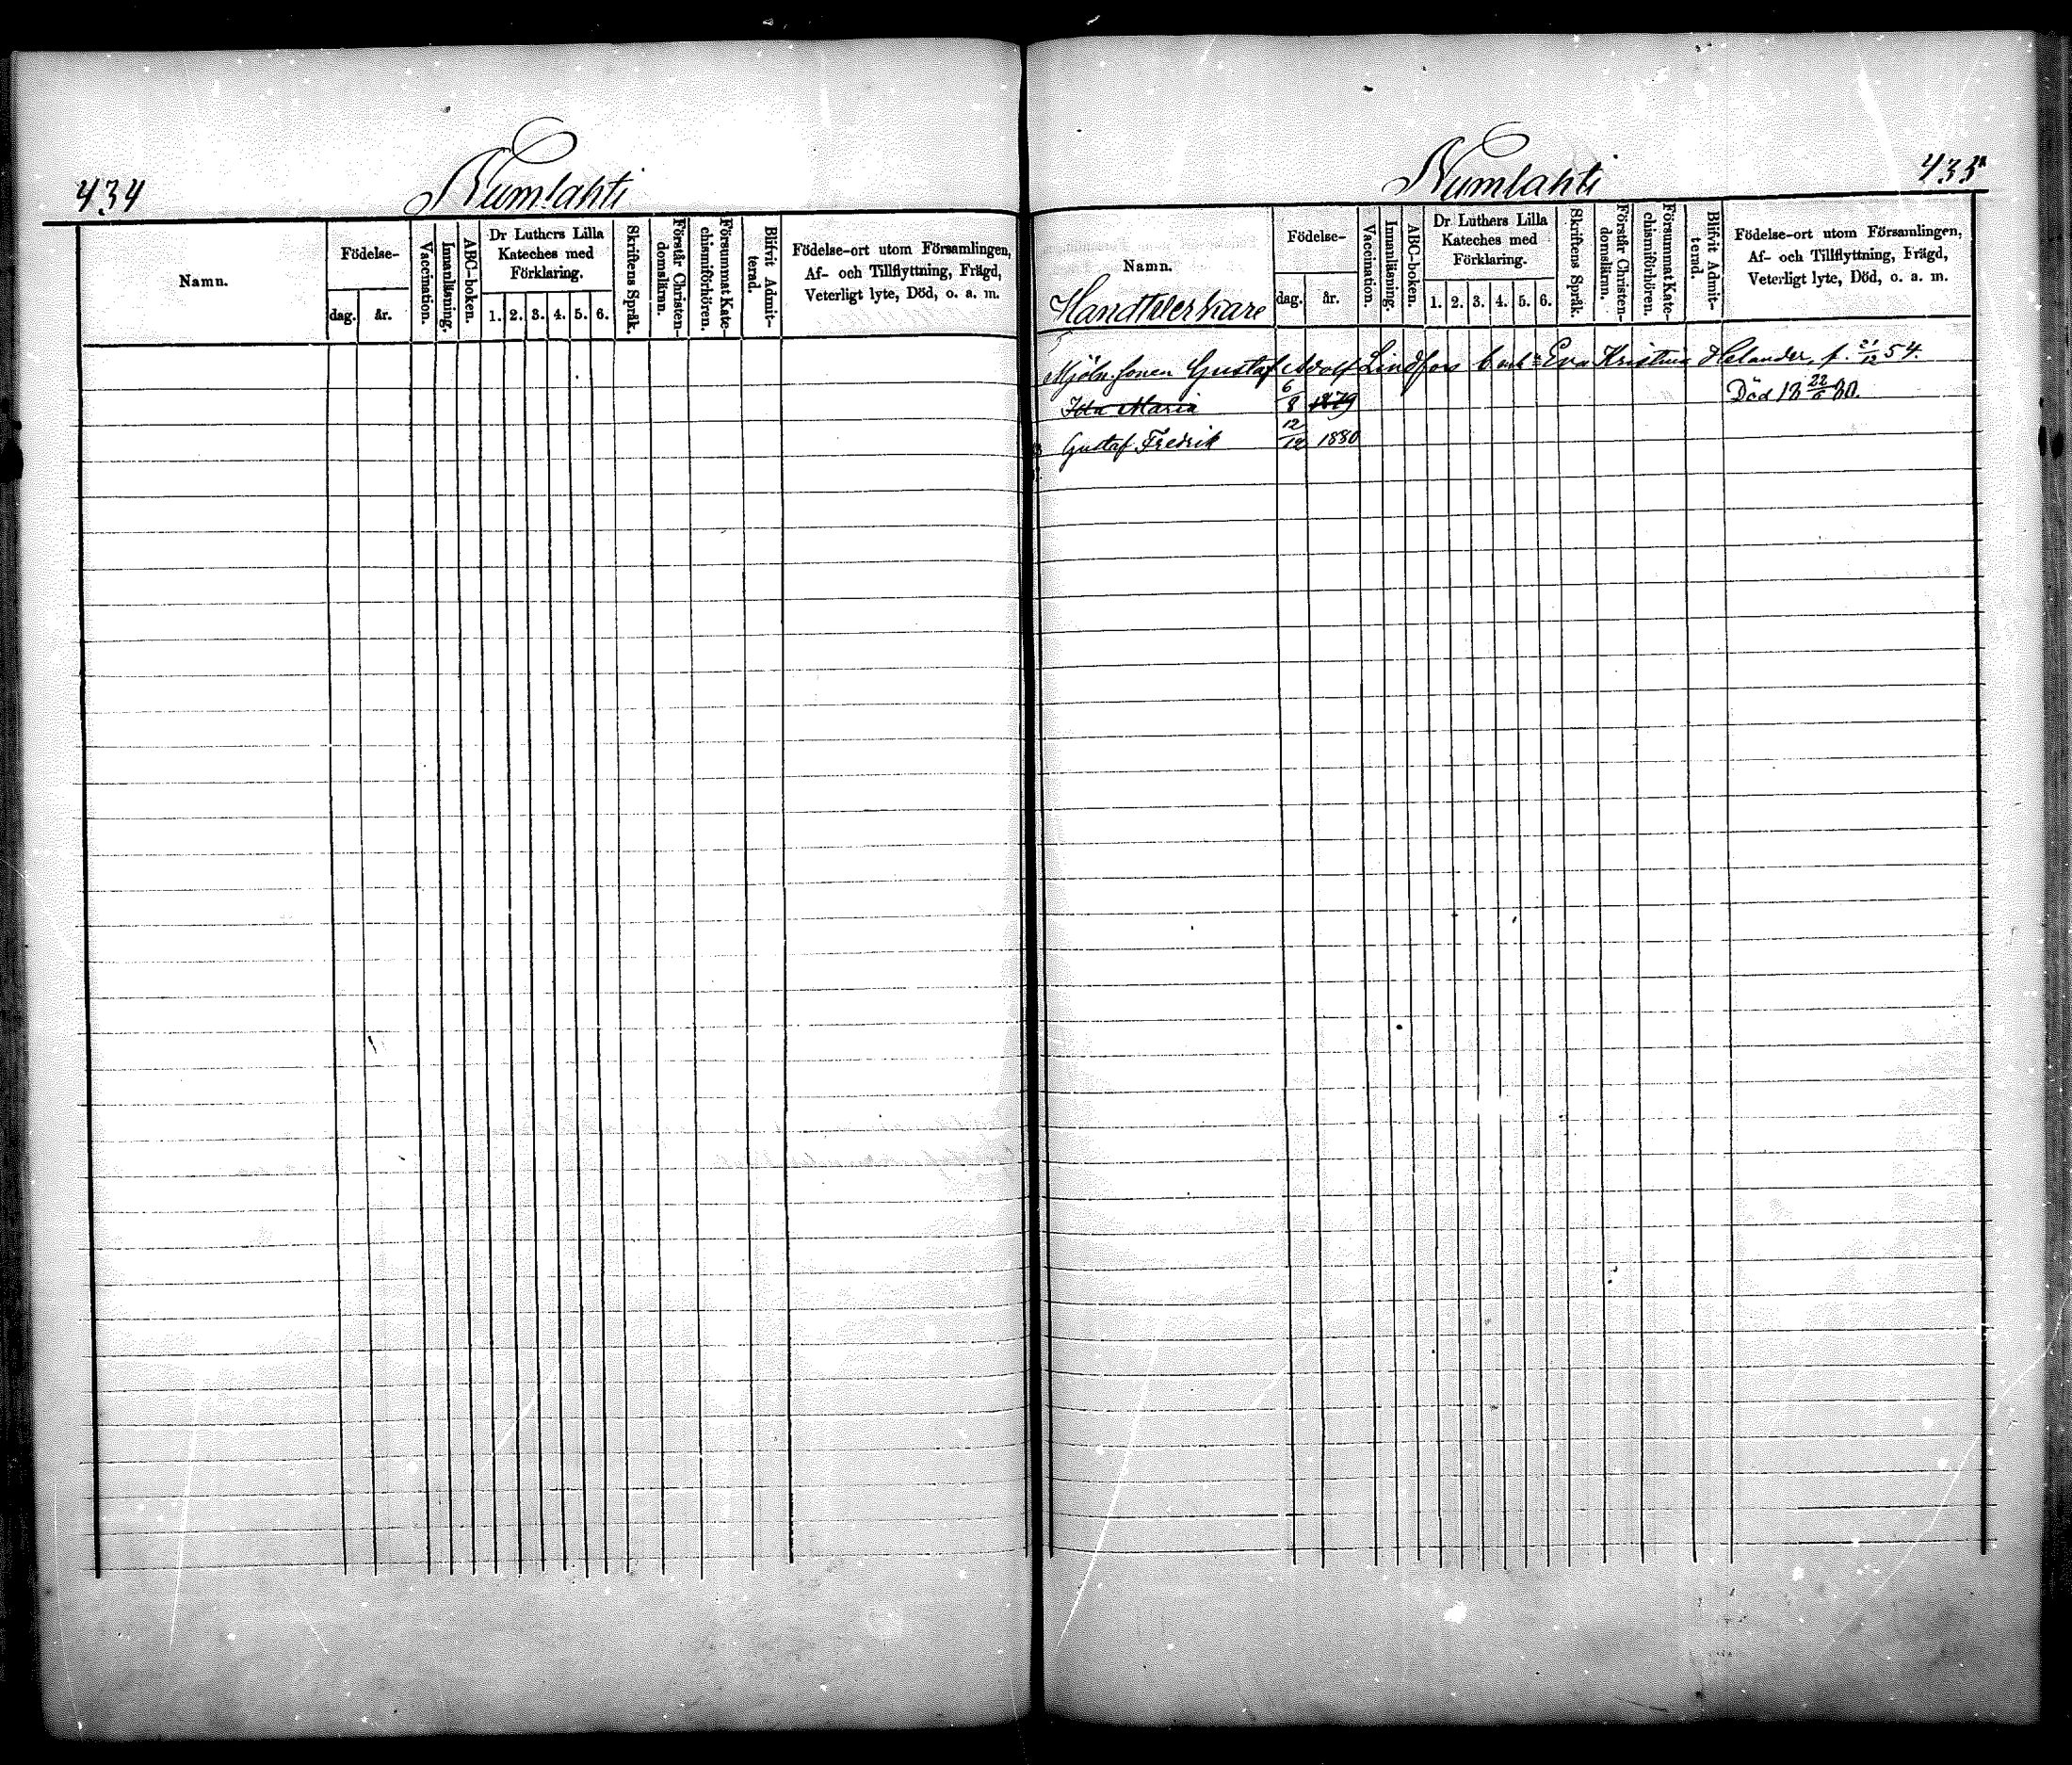 434
Numlahti
Namn.
Födelse-
dag.
år.
Vaccination.
Innanläsning.
ABC-boken.
Dr Luthers Lilla
Kateches med
Förklaring.
1. 2. 3. 4. 5. 6.
Skriftens Språk.
Förstår Christen-
domsläran.
Försummat Kate-
chismiförhören.
Blifvit Admit-
terad.
Födelse-ort utom Församlingen,
Af- och Tillflyttning, Frägd,
Veterligt lyte, Död, o. a. m.
Numlahti
435
Namn.
Handtverkare
Födelse-
dag.
år.
Vaccination.
Innanläsning.
ABC-boken.
Dr Luthers Lilla
Kateches med
Förklaring.
1. 2. 3. 4. 5. 6.
Skriftens Språk.
Förstår Christen-
domsläran.
Försummat Kate-
chismiförhören.
Blifvit Admit-
terad.
Födelse-ort utom Församlingen,
Af- och Tillflyttning, Frägd,
Veterligt lyte, Död, o. a. m.
Mjöln. sonen Gustaf Adolf Lindfors Eva Kristina Helander f. 21/12 54.
Ida Maria 6/8 1879 Död 18 22/6 80.
Gustaf Fredrik 12/12 1880